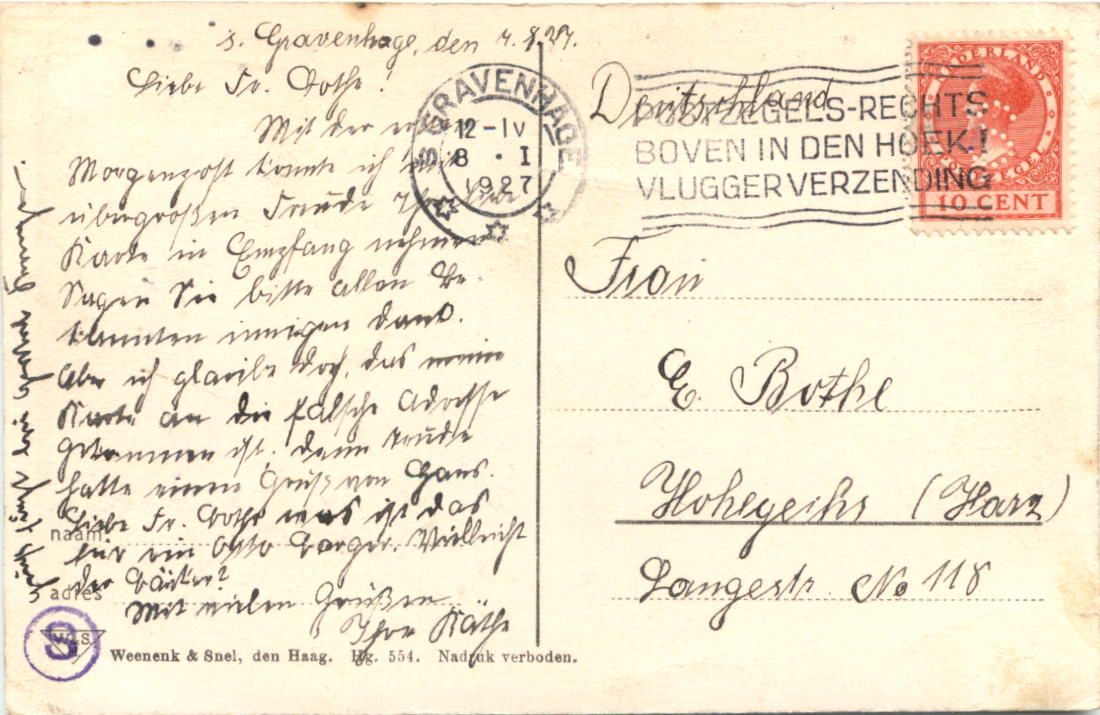 s. Gravenhage, den 7.8.27.
Liebe Fr. Bothe!
Mit der
Morgenpost konnte ich mit
übergroßen Freude Ihre
Karte in Empfang nehmen
Sagen Sie bitte allen Be-
kannten innigen Dank.
Aber ich glaube doch, das meine
Karte an die falsche Adresse
gekommen ist, denn Trude
hatte einen Gruß von Hans.
Liebe Fr. Bothe was ist das
für ein Otto Berger. Vielleicht
der Bäcker?
Mit vielen Grüßen
Ihre Käthe
naam
adres
W&S.
S
Weenenk & Snel, den Haag. Hg. 554. Nadruk verboden.
'S GRAVENHAGE
12-IV
8 . I
1927
POSTZEGELS-RECHTS
BOVEN IN DEN HOEK!
VLUGGER VERZENDING
NEDERLAND
POSTZEGEL
10 CENT
Deutschland
Frau
E. Bothe
Hohegeiss (Harz)
Langestr. No 118